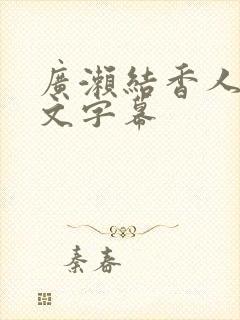 廣瀨結香人
文字幕
秦春